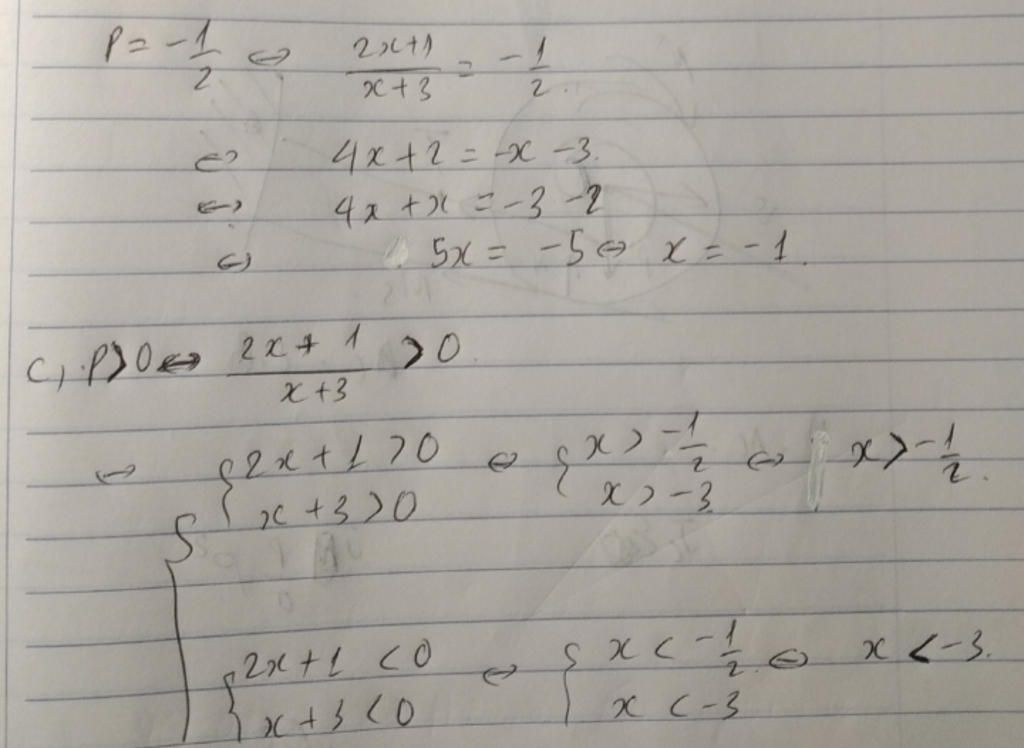 P = -1/2 ⇔ (2x+1)/(x+3) = -1/2.
⇔ 4x+2 = -x -3.
⇔ 4x +x = -3 -2
⇔ 5x = -5 ⇔ x = -1.
c, P>0 ⇔ (2x+1)/(x+3) >0.
⇔ { 2x+1>0 ⇔ { x > -1/2 ⇔ x > -1/2.
x+3>0 x > -3
{ 2x+1 <0 ⇔ { x < -1/2. ⇔ x < -3.
x+3 <0 x < -3